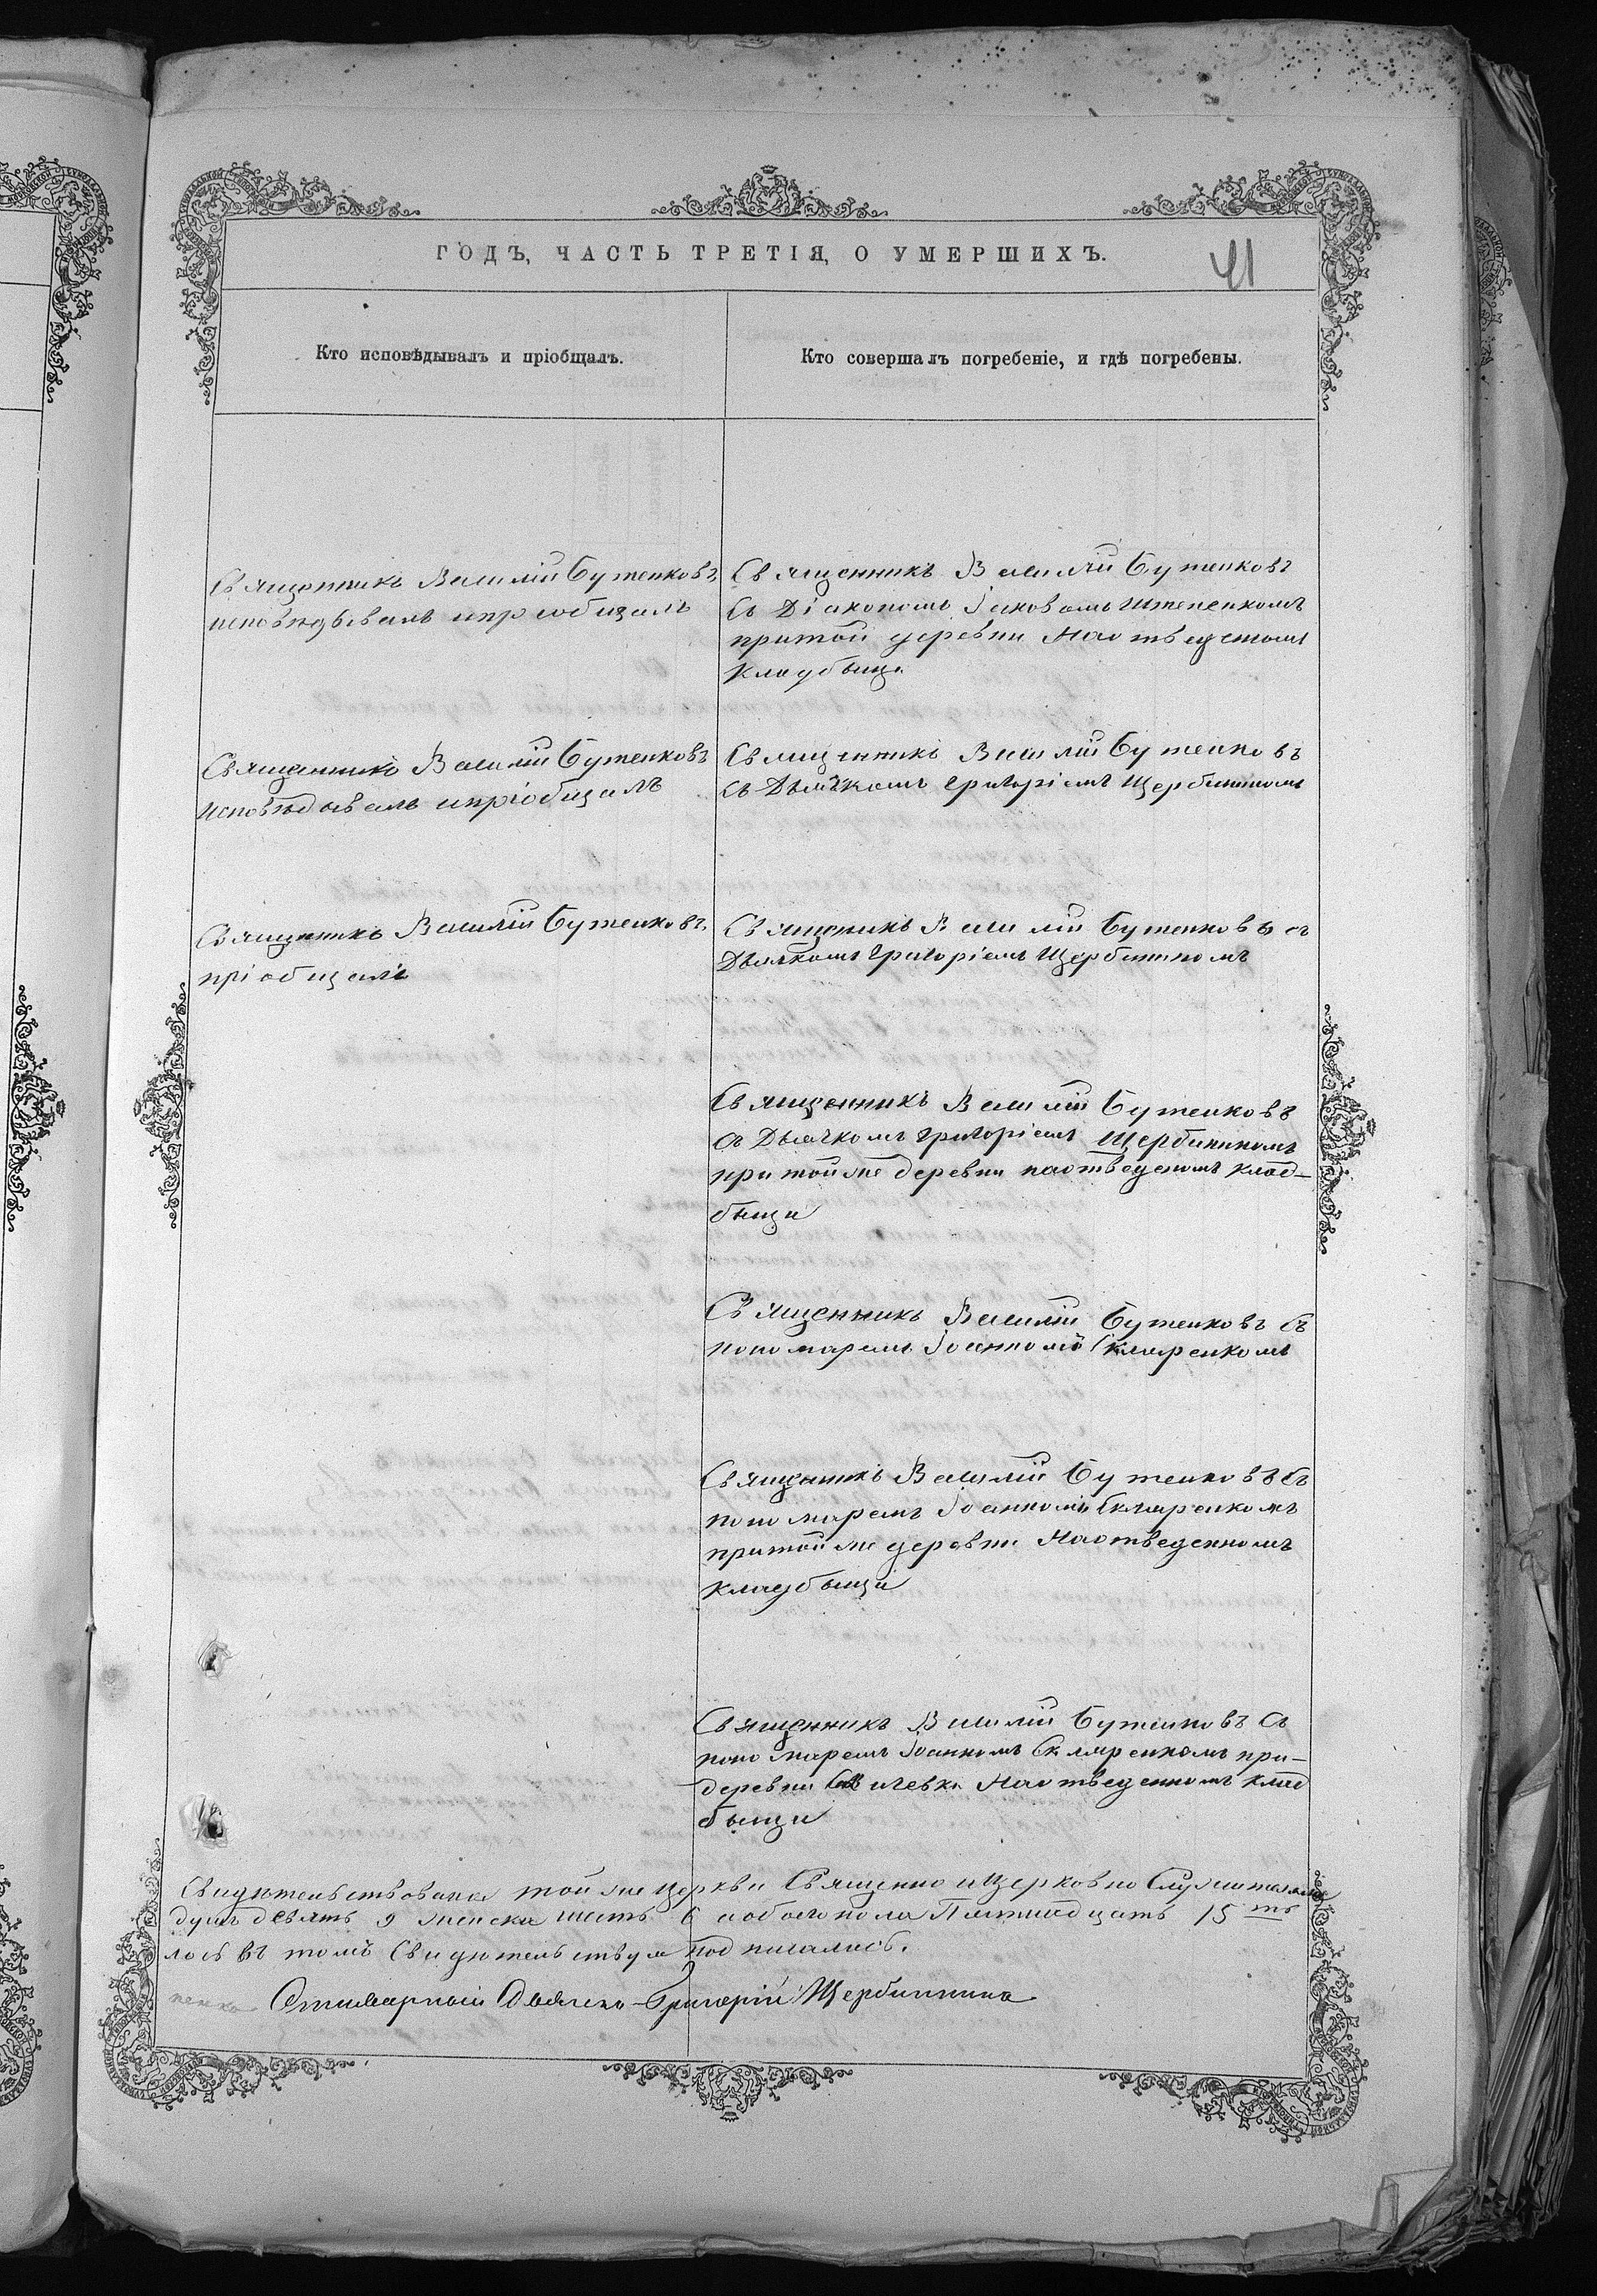 ГОДЪ, ЧАСТЬ ТРЕТІЯ, О УМЕРШИХЪ.
41
Кто исповѣдывалъ и пріобщалъ.
Кто совершалъ погребеніе, и гдѣ погребены.
Священникъ Василій Бутенковъ
исповѣдывалъ и пріобщалъ
Священникъ Василій Бутенковъ
съ Діакономъ Іаковомъ
притой деревни На отведеномъ
кладбыще
Священникъ Василій Бутенковъ
исповѣдывалъ и пріобщалъ
Священникъ Василій Бутенковъ
съ Дьячкомъ Григоріемъ Щербининомъ
Священникъ Василій Бутенковъ
пріобщалъ
Священикъ Василій Бутенковъ съ
Дьячкомъ Григоріемъ Щербининомъ
Священникъ Василій Бутенковъ
съ Дьячкомъ Григоріемъ Щербининомъ
при тойже деревни наотведеномъ клад-
быщи
Священникъ Василій Бутенковъ съ
пономаремъ Іоанномъ Скляренкомъ
Священикъ Василій Бутенковъ съ
пономаремъ Іоанномъ Скляренкомъ
притойже деревни Наотведенномъ
кладбыщи
Священникъ Василій Бутенковъ съ
пономаремъ Іоанномъ Скляренкомъ при-
деревни Наотведенномъ клад
быщи
Свидѣтельствована тойже церкви Священно и церковно Служителями
душъ девять 9 женска шесть 6 а обоего пола Пятнадцать 15 ть
лось въ томъ Свидѣтельствуя подписались.
Дьячекъ Григорій Щербининъ